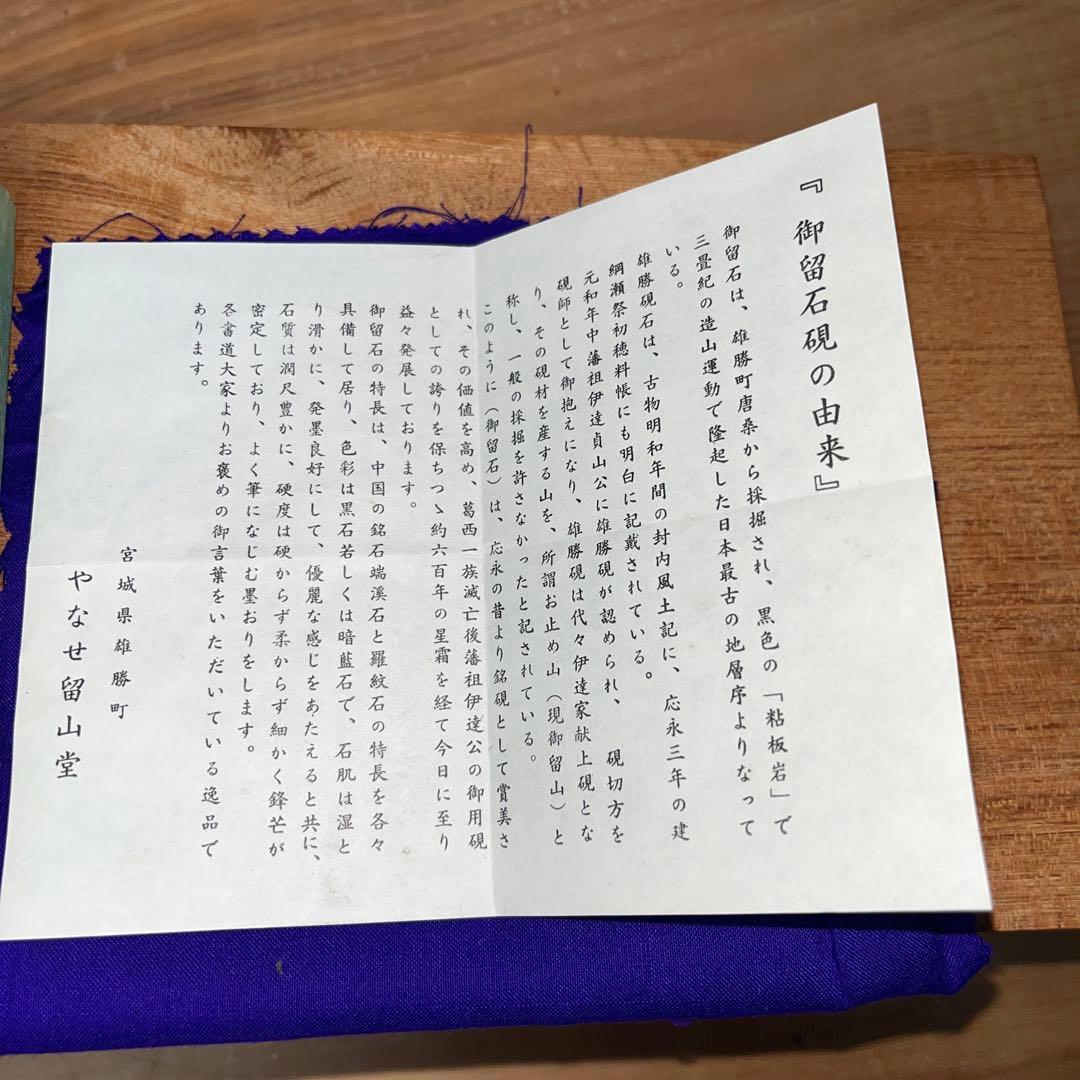 『御留石硯の由来』
御留石は、雄勝町唐桑から採掘され、黒色の「粘板岩」で
三畳紀の造山運動で隆起した日本最古の地層序よりなって
いる。
雄勝硯石は、古物明和年間の封内風土記に、応永三年の建
綱瀬祭初穂料帳にも明白に記戴されている。
元和年中藩祖伊達貞山公に雄勝硯が認められ、硯切方を
硯師として御抱えになり、雄勝硯は代々伊達家献上硯とな
り、その硯材を産する山を、所謂お止め山（現御留山）と
称し、一般の採掘を許さなかったと記されている。
このように（御留石）は、応永の昔より銘硯として賞美さ
れ、その価値を高め、葛西一族滅亡後藩祖伊達公の御用硯
としての誇りを保ちつゝ約六百年の星霜を経て今日に至り
益々発展しております。
御留石の特長は、中国の銘石端溪石と羅紋石の特長を各々
具備して居り、色彩は黒石若しくは暗藍石で、石肌は湿と
り滑かに、発墨良好にして、優麗な感じをあたえると共に、
石質は潤尺豊かに、硬度は硬からず柔からず細かく鋒芒が
密定しており、よく筆になじむ墨おりをします。
各書道大家よりお褒めの御言葉をいただいている逸品で
あります。
宮城県雄勝町
やなせ留山堂